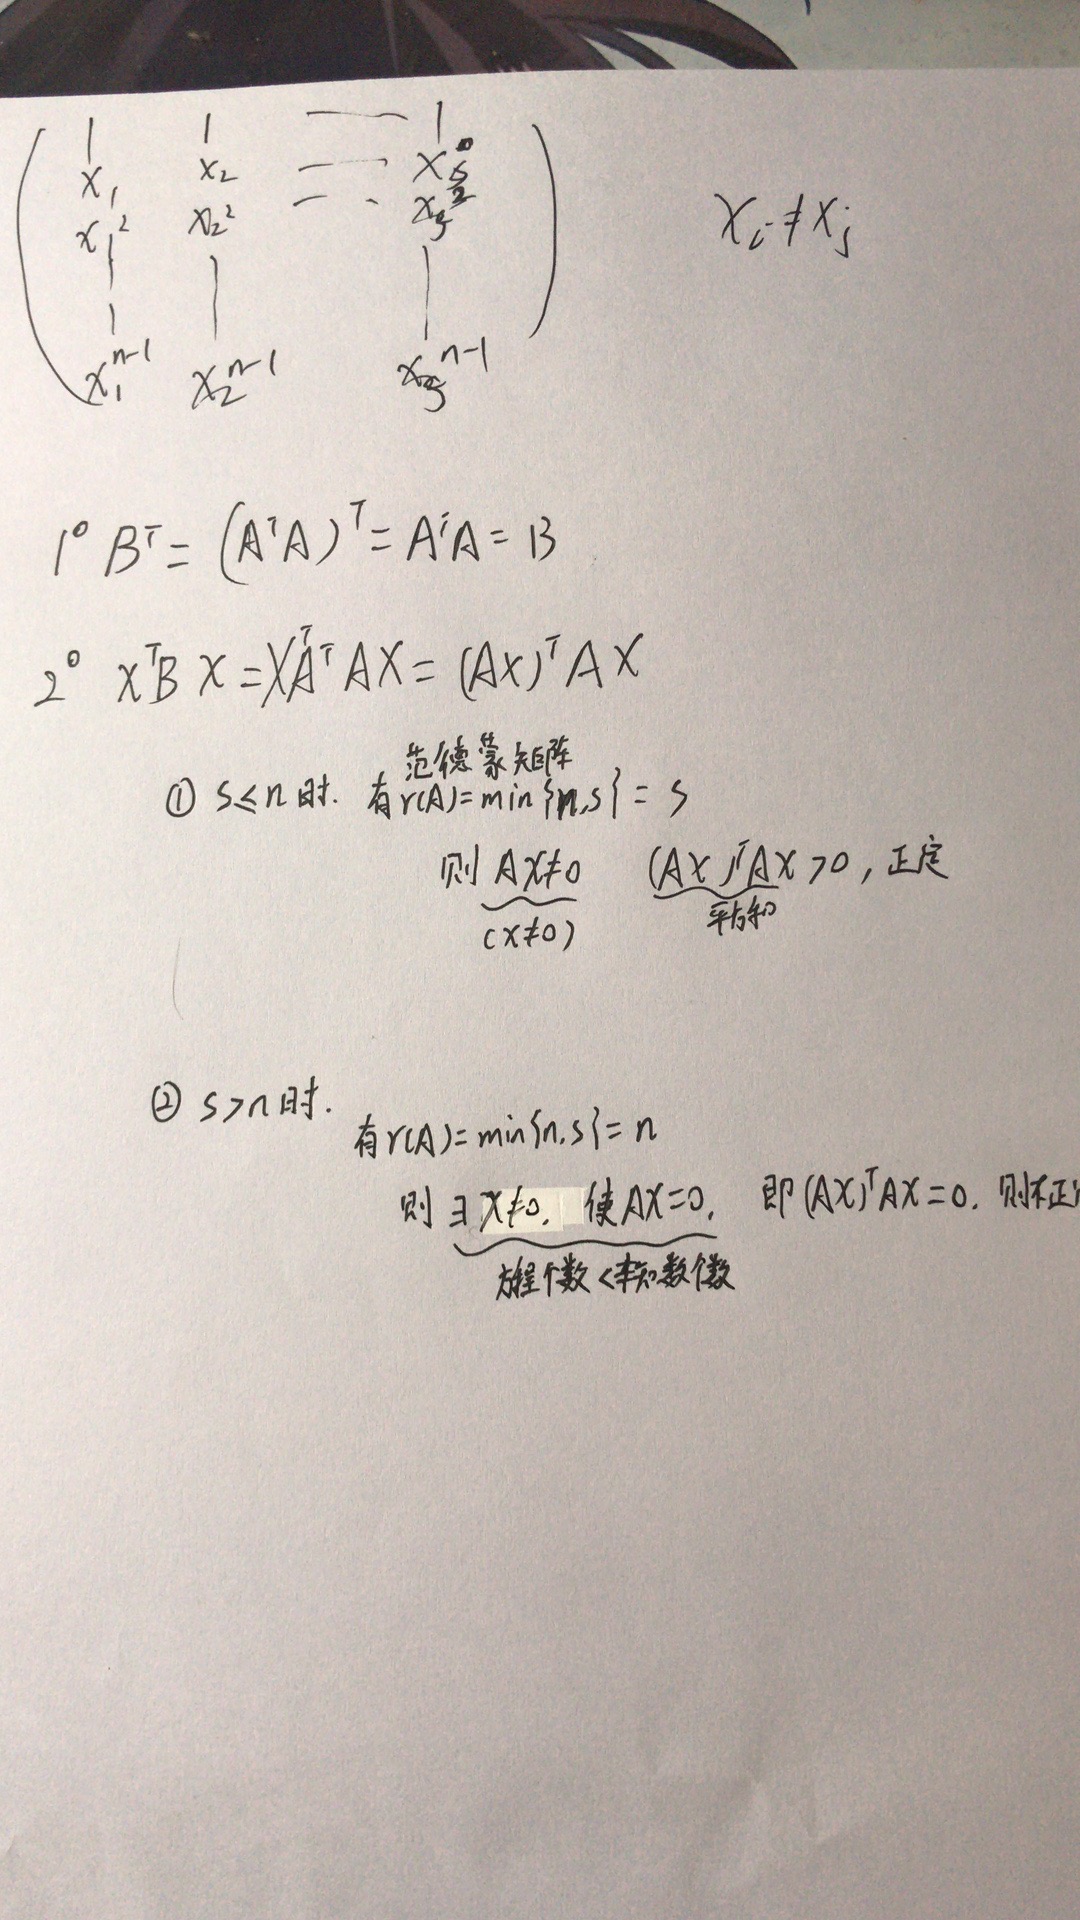 1 1 —— 1
x₁ x₂ —— xₛ
x₁² x₂² —— xₛ²
x₁ⁿ⁻¹ x₂ⁿ⁻¹ xₛⁿ⁻¹
xᵢ≠xⱼ
1° Bᵀ=(AᵀA)ᵀ=AᵀA=B
2° xᵀBx=xᵀAᵀAX=(AX)ᵀAX
范德蒙矩阵
① s≤n时. 有r(A)=min{n,s}=s
则 AX≠0 (AX)ᵀAX>0,正定
(x≠0) 平方和
② s>n时.
有r(A)=min{n,s}=n
则∃X≠0, 使AX=0, 即(AX)ᵀAX=0. 则不正
方程个数<未知数个数